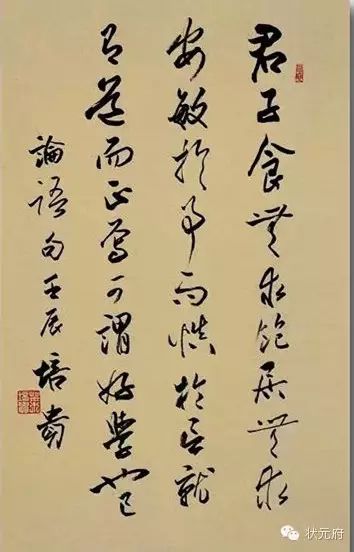 君子食無求飽居無求
安敏於事而慎於言就
有道而正焉可謂好學也已
論語句壬辰培貴
状元府